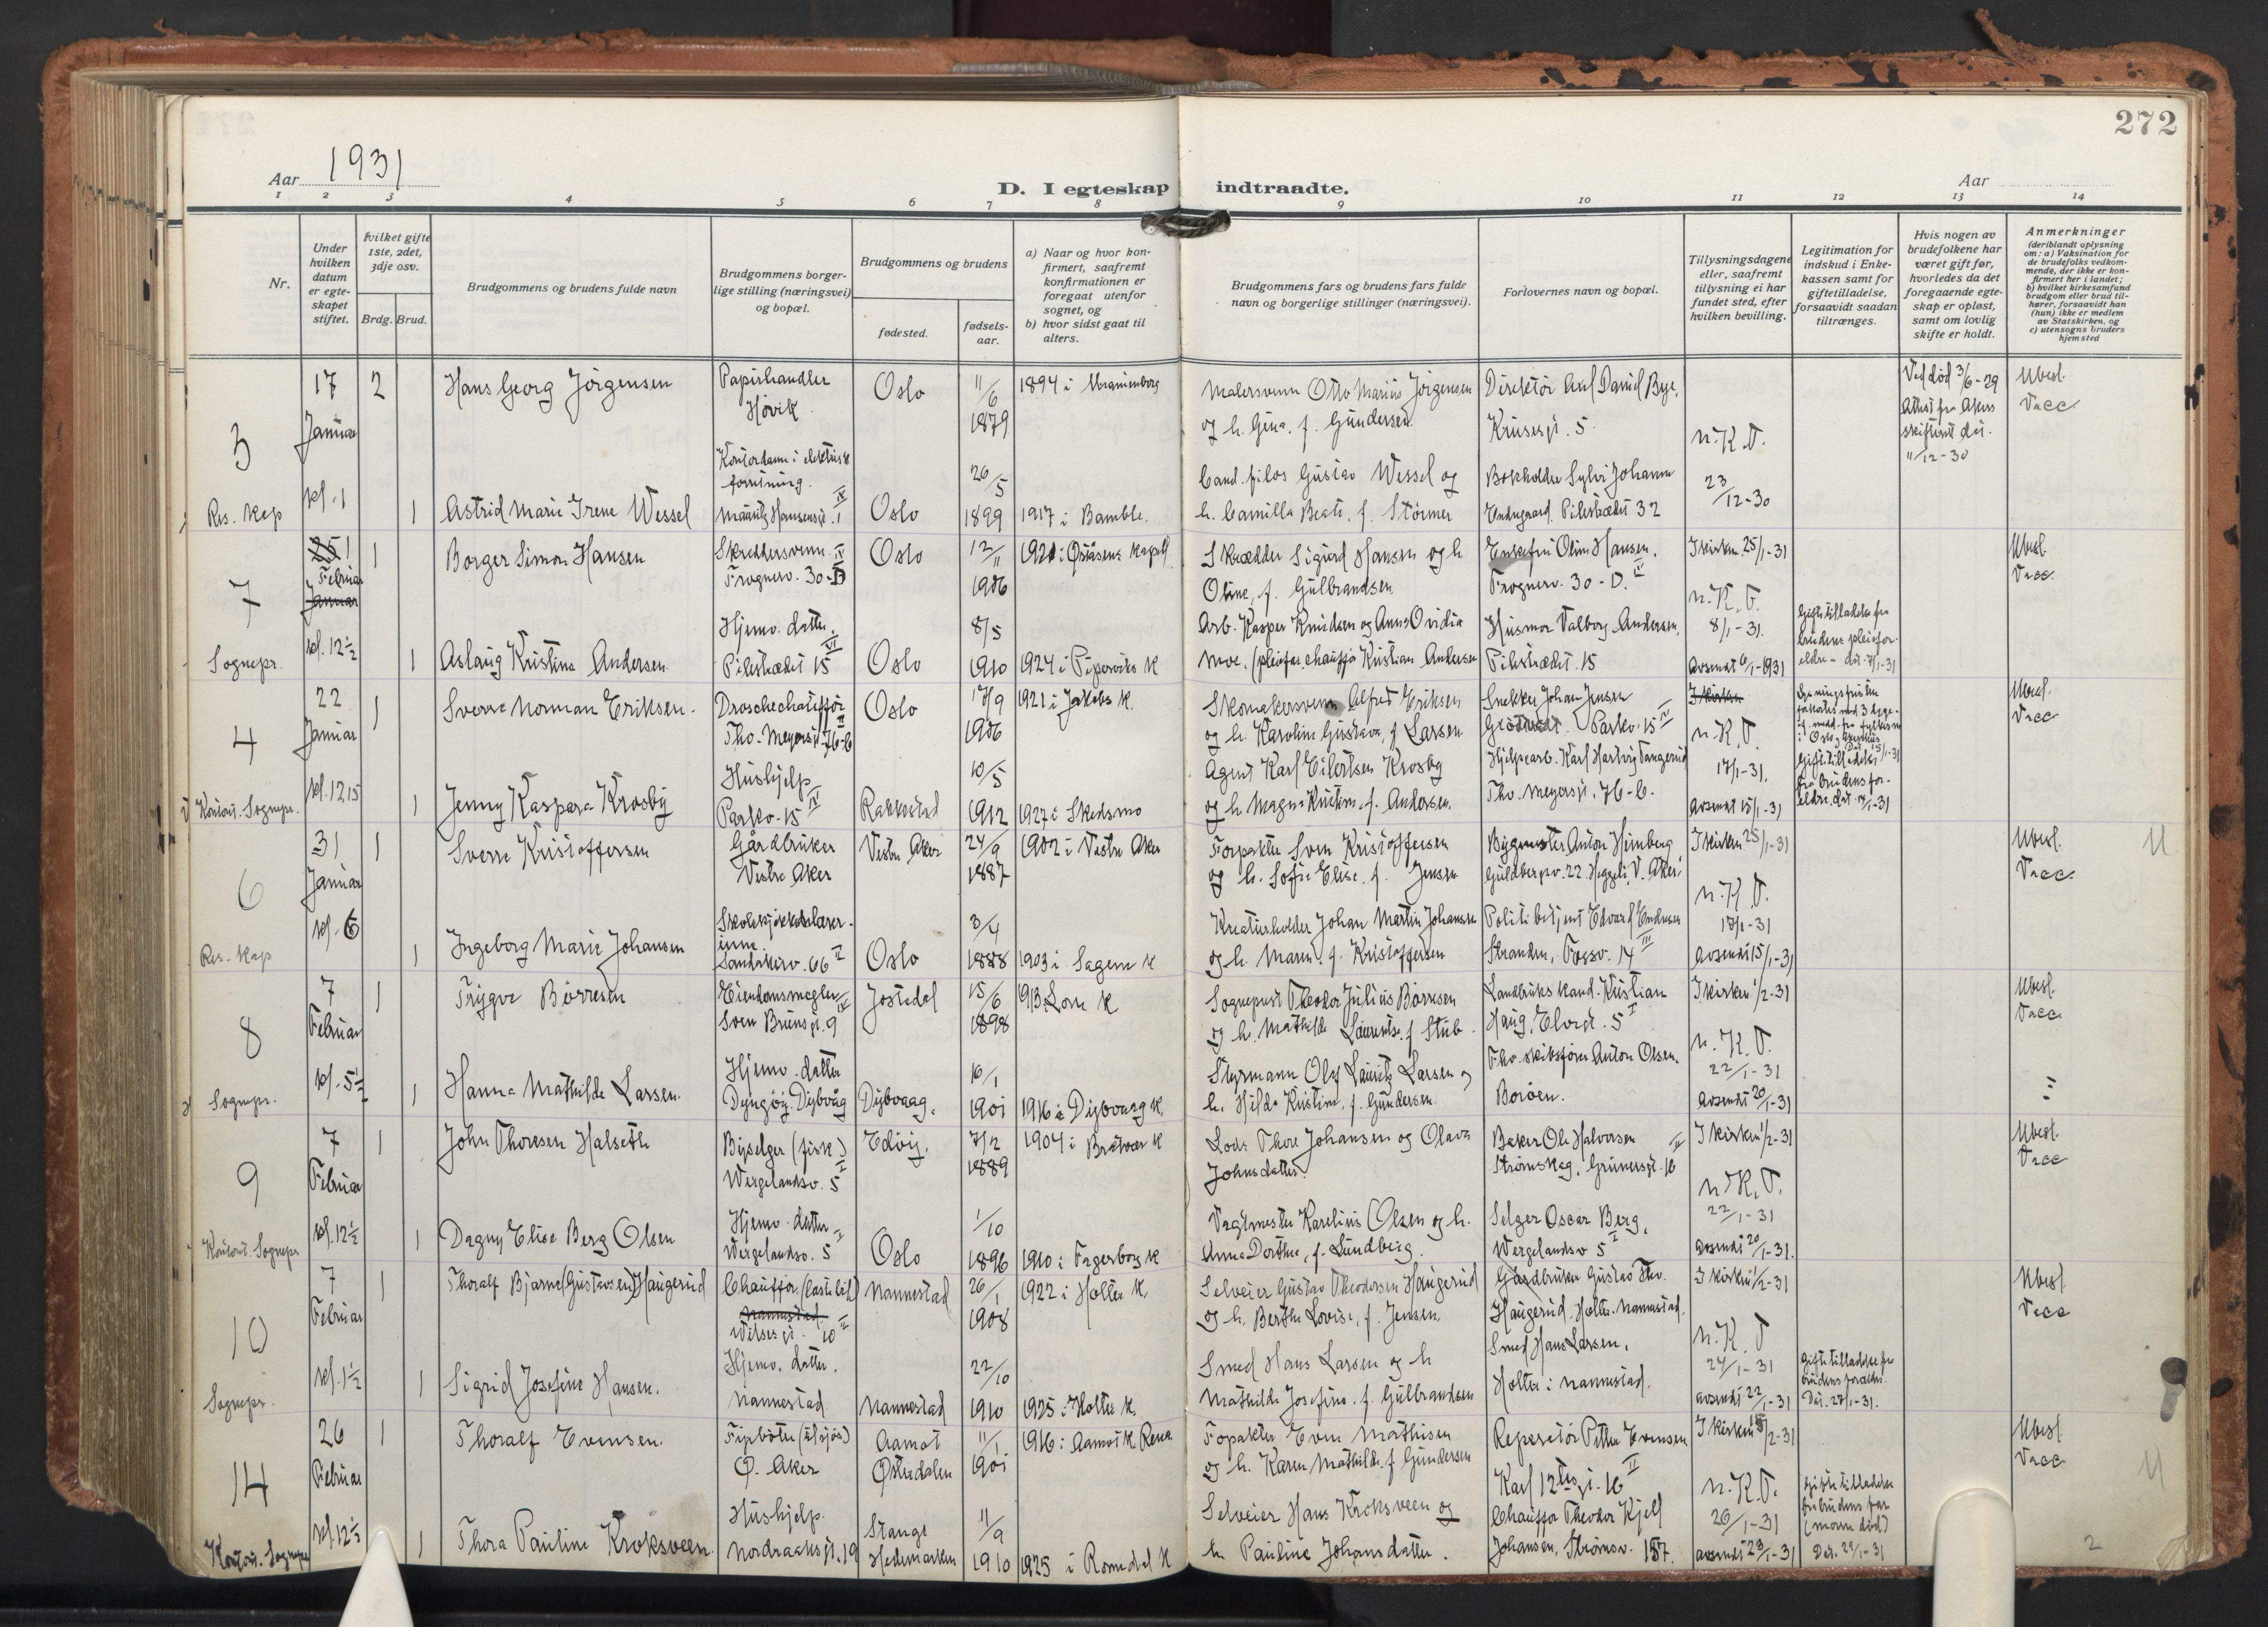 272
Aar 1931
D. I egteskap indtraadte.
Aar
1 2 3 4 5 6 7 8 9 10 11 12 13 14
Nr.
Under hvilken datum er egteskapet stiftet.
Hvilket gifte 1ste, 2det, 3dje osv.
Brdg. Brud.
Brudgommens og brudens fulde navn
Brudgommens borgerlige stilling (næringsvei) og bopæl.
Brudgommens og brudens
fødested.
fødselsaar.
a) Naar og hvor konfirmert, saafremt konfirmationen er foregaat utenfor sognet, og
b) hvor sidst gaat til alters.
Brudgommens fars og brudens fars fulde navn og borgerlige stillinger (næringsvei).
Forlovernes navn og bopæl.
Tillysningsdagene eller, saafremt tillysning ei har fundet sted, efter hvilken bevilling.
Legitimation for indskud i Enkekassen samt for giftetilladelse, forsaavidt saadan tiltrænges.
Hvis nogen av brudefolkene har været gift før, hvorledes da det foregaaende egteskap er opløst, samt om lovlig skifte er holdt.
Anmerkninger (deriblandt oplysning om: a) Vaksination for de brudefolks vedkommende, der ikke er konfirmert her i landet; b) hvilket kirkesamfund brudgom eller brud tilhører, forsaavidt han (hun) ikke er medlem av Statskirken, og c) utensogns bruders hjemsted
3
17 Januar kl. 1
Res. Kap
2 Hans Georg Jörgensen
Papirhandler Høvik
Oslo 11/6 1879
1894 i Uranienborg
Malersvenn Otto Marius Jörgensen og h. Gina, f. Gundersen
Direktör Axel Daniel Bye, Krusesgt. 5
n.K.T. 23/12-30
Ved död 3/6-29 Attest fra Akers skifterett dat. 11/12-30
Ubesl. Vacc.
1 Astrid Marie Irene Wessel
Kontordame i elektrisk forretning. Mauritz Hansensgt. 1 IV
Oslo 26/5 1899
1917 i Bamble.
Cand. filos Gustav Wessel og h. Camilla Beate, f. Störmer
Bokholder Sylvi Johanne Pilestrædet 32
7
1 Februar Januar kl. 12½
Sognepr.
1 Borger Simon Hansen
Skreddersvenn Frognerv. 30-D IV
Oslo 12/11 1906
1921 i kapell
Skrædder Sigurd Hansen og h. Oline, f. Gulbrandsen
Enkefru Oline Hansen, Frognerv. 30-D. IV
I kirken 25/1-31
n.K.T. 8/1-31. avsendt 6/1-1931
Ubesl. Vacc.
1 Aslaug Kristine Andersen
Hjemv. datter, Pilestrædet 15 VI
Oslo 8/5 1910
1924 i Pipervikens K
Arb. Kasper Knudsen og Anna Ovidia Moe. (pleiefar chauffør Kristian Andersen
Husmor Valborg Andersen, Pilestrædet 15
Giftetilladelse fra brudens pleieforeldre - dat. 7/1-31
4
22 Januar kl. 12 15
Kontoret. Sognepr.
1 Sverre Norman Eriksen.
Droschechauffør Thv. Meyersgt. 76-b II
Oslo 17/9 1906
1921 i Jakobs K.
Skomakersvenn Alfred Eriksen og h. Karoline Gustava, f Larsen
Snekker Johan Jensen Parkv. 15 IV
I kirken
n.K.T. 17/1-31. avsendt 15/1-31
Ubesl. Vacc
1 Jenny Kaspara Krosby
Hushjelp Parkv. 15 IV
Rakkestad 10/5 1912
1927 i Skedsmo
Agent Karl Eilertsen Krosby og h. Magna Kristine, f. Andersen.
Hjelpearb. Karl Hartvig Tangerud Thv. Meyersgt. 76-b.
Gift. tilladelse fra brudens foreldre. dat 14/1-31
6
31 Januar kl. 6
Res. Kap
1 Sverre Kristoffersen
Gårdbruker Vestre Aker
Vestre Aker 24/9 1887
1902 i Vestre Aker
Forpakter Sven Kristoffersen og h. Sofie Elise. f. Jensen
Bygmester Anton Heinberg Guldbergsv. 22. Heggeli, V. Aker
I kirken 25/1-31
n.K.T. 17/1-31 avsendt 15/1-31
Ubesl. Vacc.
1 Ingeborg Marie Johansen
Skolekjøkkenlærerinne. Sandakerv. 66 II
Oslo 3/4 1888
1903 i Sagene K
Kreaturholder Johan Martin Johansen og h. Maren, f. Kristoffersen
Politibetjent Edvard Endresen Stranden, Fossv. 14 III
8
7 Februar kl. 5½
Sognepr.
1 Trygve Börresen
Eiendomsmegler Sven Brunsgt. 9 IV
Jostedal 15/6 1898
1913 Lom K
Sogneprest Theodor Julius Börresen og h. Mathilde Laurentse. f Stub.
Landbrukskand. Kristian Haug, Elvegt. 5 I
I kirken 1/2-31
n.K.T. 22/1-31 avsendt 20/1-31
Ubesl. Vacc
1 Hanna Mathilde Larsen.
Hjemv. datter Dyngöy. Dybvåg
Dybvaag. 16/1 1901
1916 i Dybvaag K.
Styrmann Olaf Lauritz Larsen og h. Hilda Kristine, f. Gundersen.
Fhv. skibsförer Anton Olsen. Boröen.
9
7 Februar kl. 12½
Kontoret. Sognepr
1 John Thoresen Halseth
Byselger (fisk.) Wergelandsv. 5 I
Edöy. 7/12 1889
1904 i Brattvær K
Lods Thore Johansen og Olava Johnsdatter.
Baker Ole Halvorsen Strömskag, Grünersgt. 16 II
I kirken 1/2-31
n.K.T. 22/1-31 avsendt 20/1-31.
Ubesl. Vacc
1 Dagny Elise Berg Olsen
Hjemv. datter Wergelandsv. 5 I
Oslo 1/10 1896
1910 i Fagerborg K
Vagtmester Karelius Olsen og h. Anna Dorthea, f. Lundberg.
Selger Oscar Berg, Wergelandsv 5 I
10
7 Februar kl. 1½
Sognepr.
1 Thoralf Bjarne (Gustavsen) Haugerud
Chauffør (lastebil) Nannestad Wilsesgt. 10 II
Nannestad 26/1 1908
1922 i Holter K.
Selveier Gustav Theodorsen Haugerud og h. Berthe Lovise, f. Jensen,
Gårdbruker Gustav Thv. Haugerud, Holter. Nannestad.
I kirken 1/2-31
n.K.T 24/1-31 avsendt 22/1-31
Ubesl Vacc
1 Sigrid Josefine Hansen.
Hjemv. datter. Nannestad
Nannestad 22/10 1910
1925 i Holter K.
Smed Hans Larsen og h Mathilde Josefine. f. Gulbrandsen
Smed Hans Larsen, Holter i Nannestad.
Giftetilladelse fra brudens foreldre. Dat. 27/1-31.
14
26 Februar kl. 12½
Kontoret. Sognepr
1 Thoralf Evensen.
Fyrböter (tilsjøs) Ø. Aker
Aamot Østerdalen 11/1 1901
1916 i Aamot K Rena
Fopakter Even Mathisen og h. Karen Mathilde. f Gundersen
Reperatör Petter Evensen Karl 12tes gt. 16 II
I kirken 15/2-31
n.K.T. 26/1-31 avsendt 23/1-31
Ubesl Vacc
1 Thora Pauline Kroksveen
Hushjelp. Nordraaksgt. 19
Stange Hedemarken 11/9 1910
1925 i Romedal K
Selveier Hans Kroksveen og h. Pauline Johansdatter.
Chauffør Theodor Kjell Johansen, Strömsv. 157.
Giftetilladelse fra brudens far (moren död) Dat. 29/1-31
2